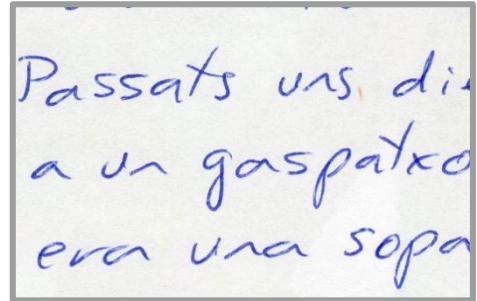 Passats uns die
a un gaspatxo
era una sopa